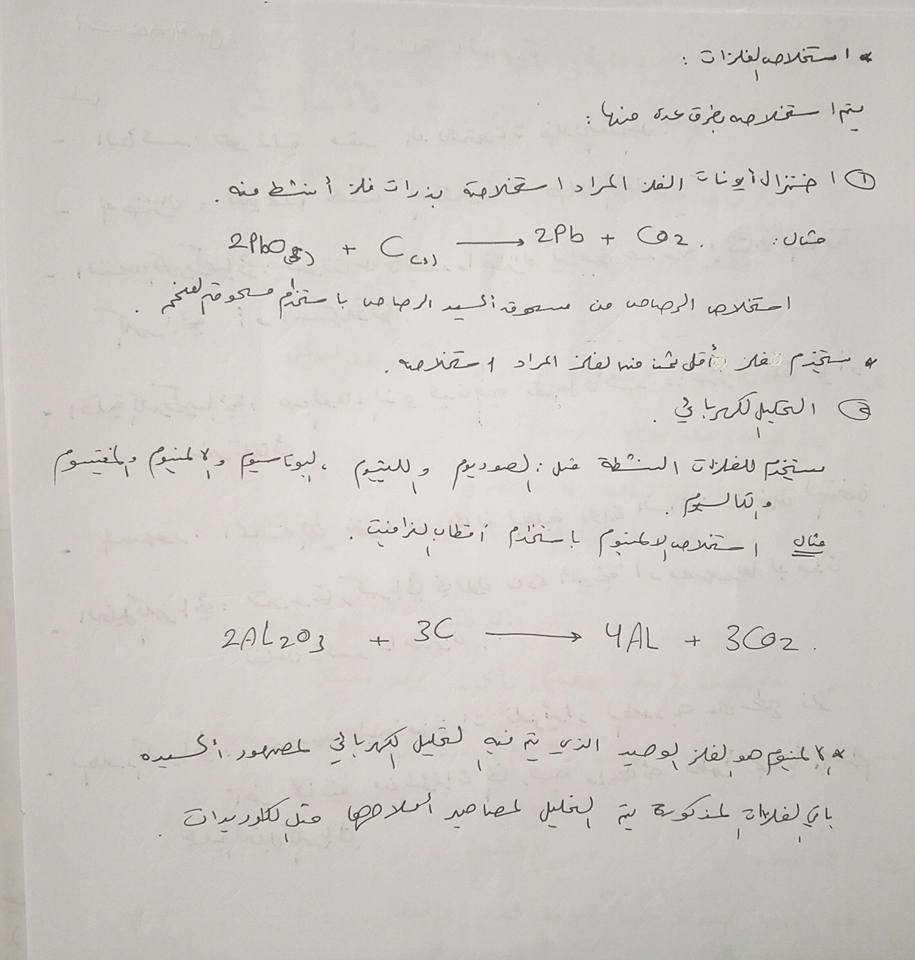 * استخلاص الفلزات :
يتم استخلاصه بطرق عدة منها :
① اختزال أيونات الفلز المراد استخلاصة بذرات فلز أنشط منه .
مثال : 2PbO(s) + C(s) ⟶ 2Pb + CO2 .
استخلاص الرصاص من مسحوق أكسيد الرصاص باستخدام مسحوق الفحم .
* يستخدم فلز أقل ثمنا من الفلز المراد استخلاصه .
② التحليل الكهربائي .
يستخدم للفلزات النشطة مثل : الصوديوم والليثيوم ، البوتاسيوم والالمنيوم والمغنيسيوم
والكالسيوم .
مثال استخلاص الالمنيوم باستخدام أقطاب الغرافيت .
2AL2O3 + 3C ⟶ 4AL + 3CO2 .
* الالمنيوم هو الفلز الوحيد الذي يتم فيه التحليل الكهربائي لمصهور أكسيده
باقي الفلزات المذكورة يتم التحليل لمصاهير أملاحها مثل الكلوريدات .